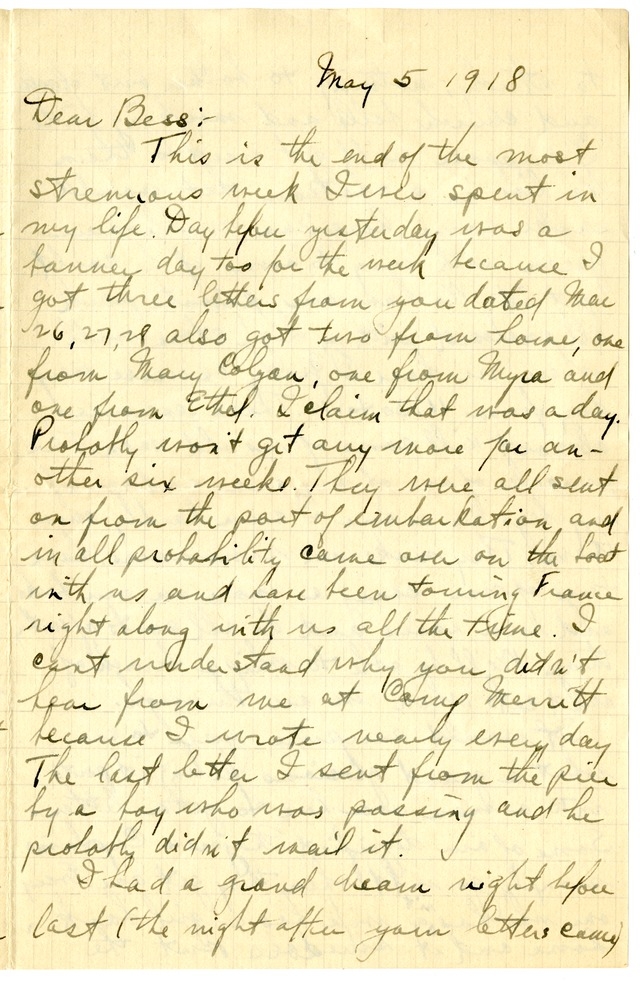 May 5 1918
Dear Bess:-
This is the end of the most
strenuous week I ever spent in
my life. Day before yesterday was a
banner day too for the week because I
got three letters from you dated Mar
26, 27, 28 also got two from home, one
from Mary Colgan, one from Myra and
one from Ethel. I claim that was a day.
Probably won't get any more for an-
other six weeks. They were all sent
on from the port of embarkation and
in all probability came over on the boat
with us and have been touring France
right along with us all the time. I
cant understand why you didn't
hear from me at Camp Merritt
because I wrote nearly every day
The last letter I sent from the pier
by a boy who was passing and he
probably didn't mail it.
I had a grand dream night before
last (the night after your letters came)